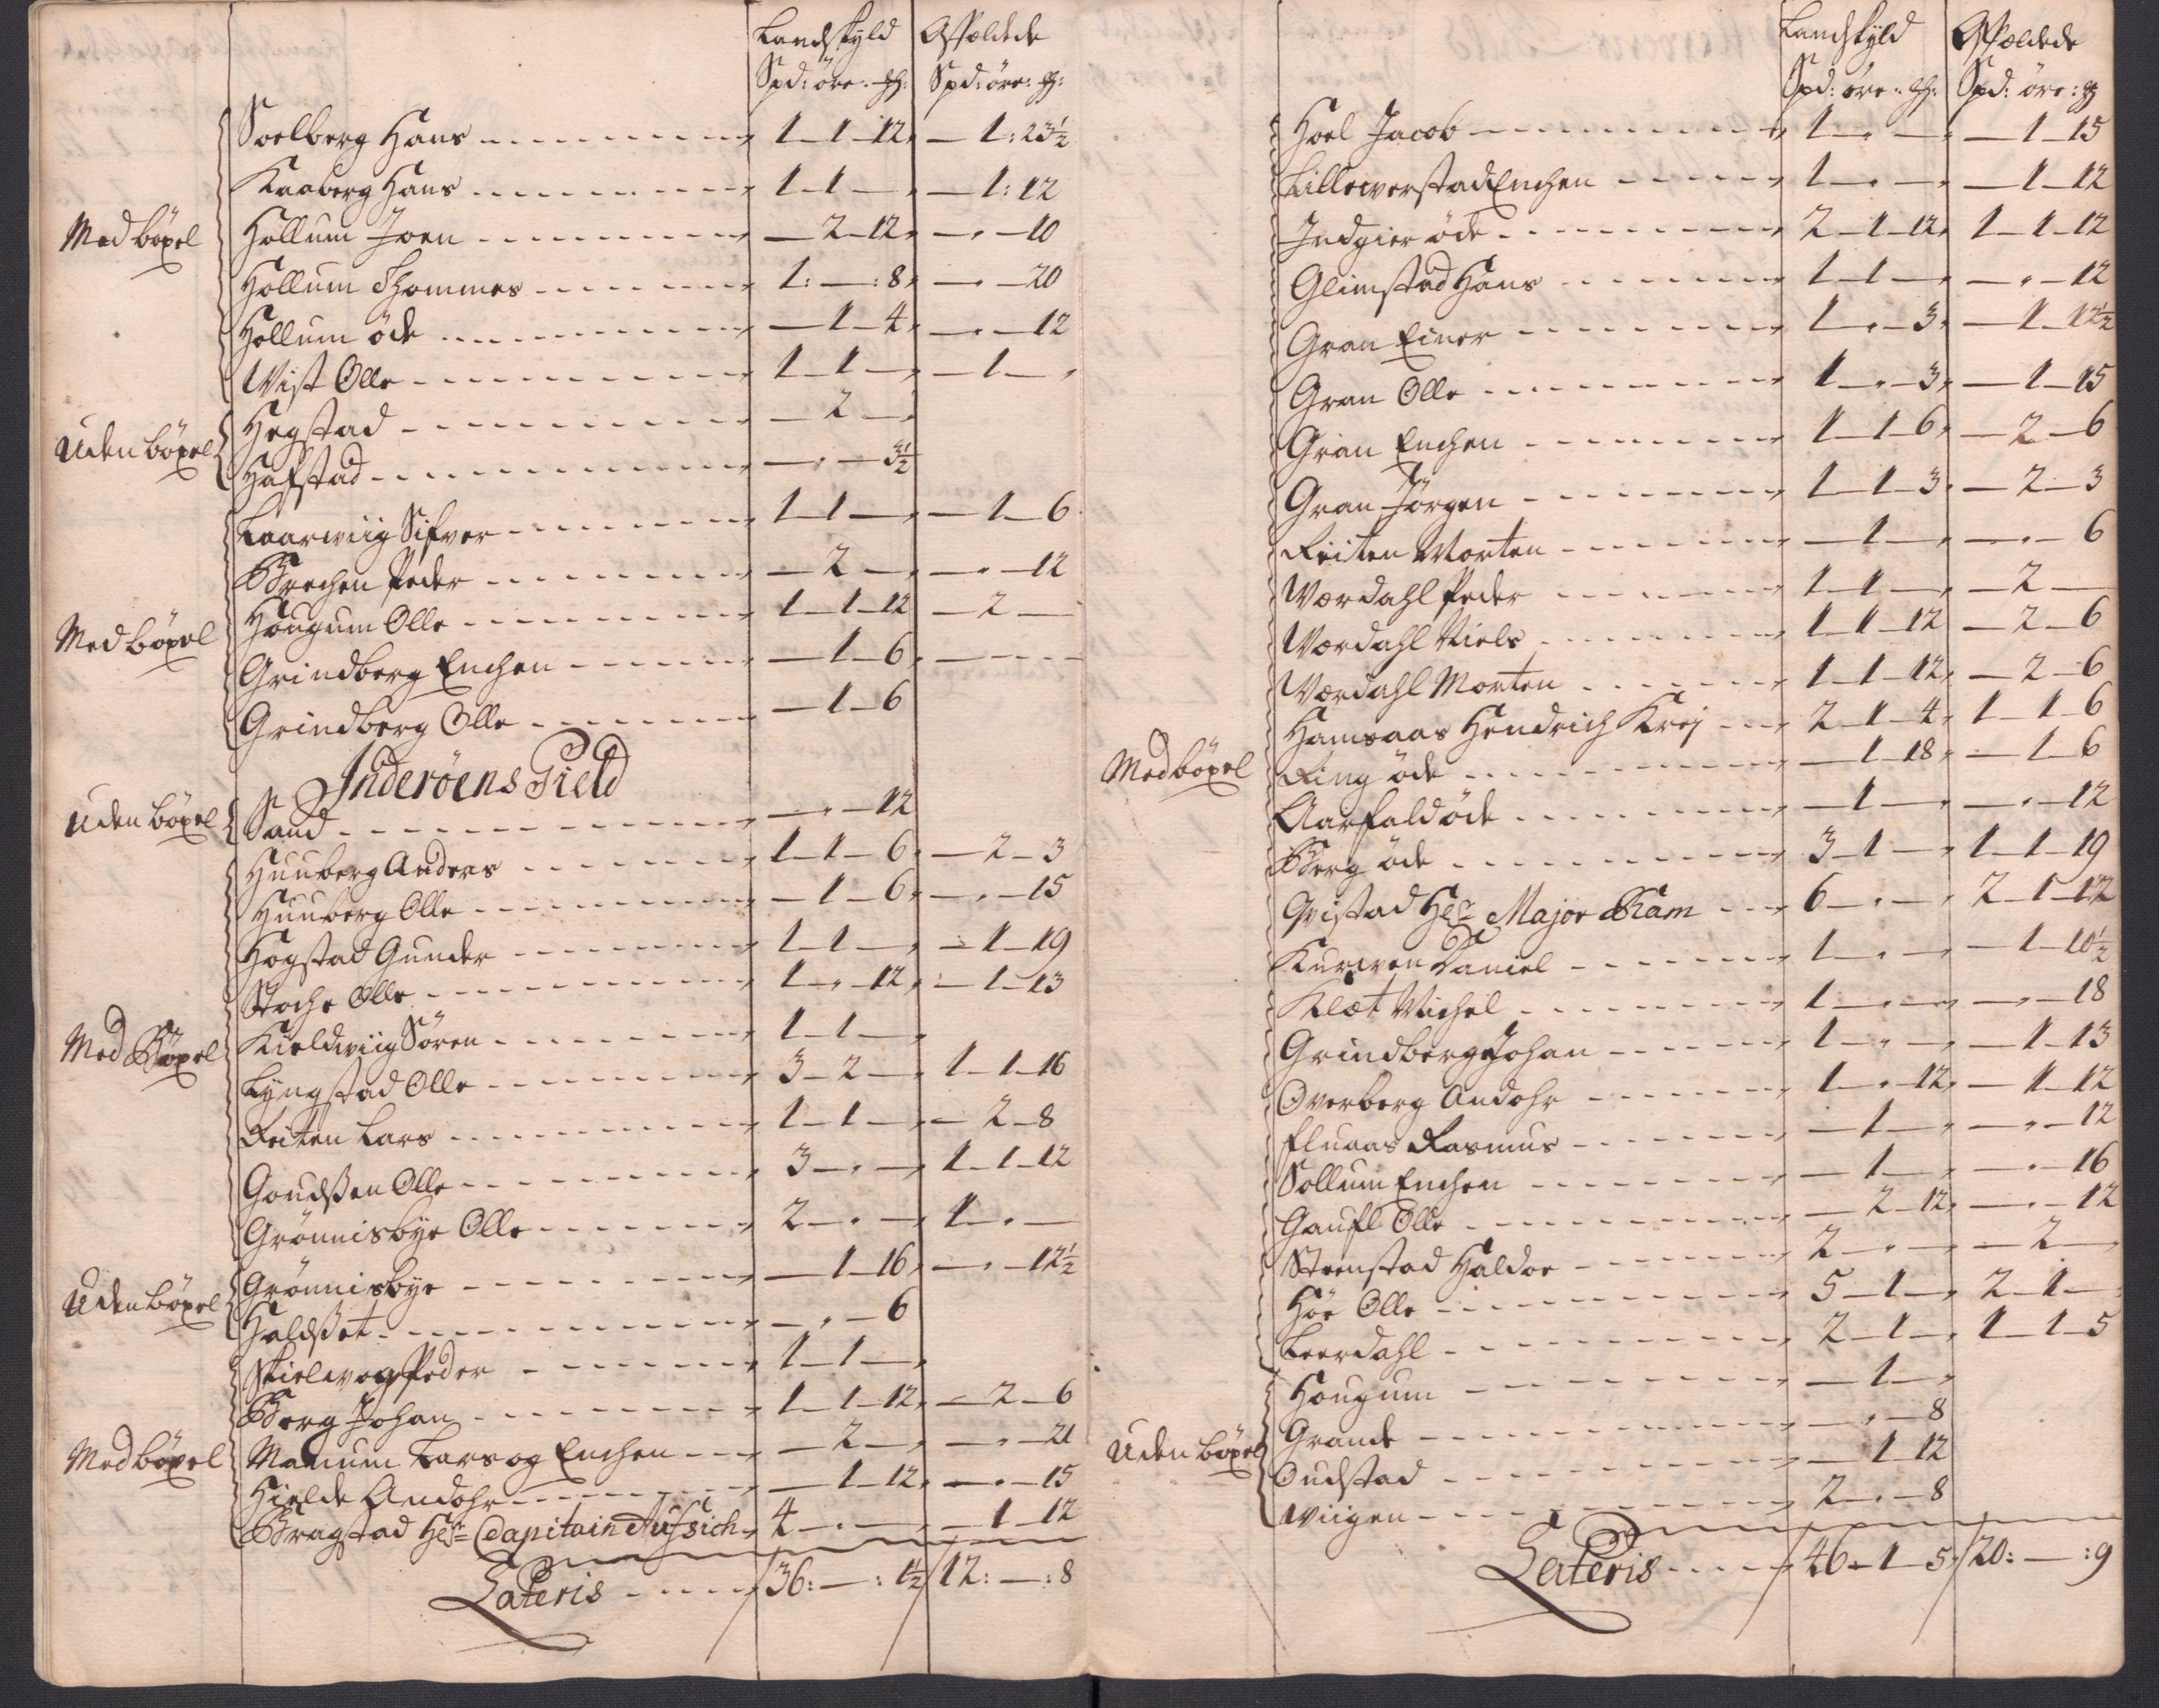 Landskyld Afsældede
Spd: öre: Spd: öre:
Soelberg Hans 1 - 1 - 12 — 1 : 23½
Kaaberg Hans 1 - 1 — — 1 : 12
Med böxel
Hollum Joen — 2 - 12 — " — 10
Hollum Thommes 1 : — : 8 — " — 20
Hollum öde — 1 - 4 — " — 12
Wist Olle 1 - 1 — — 1 —
Uden böxel
Hegstad — 2 —
Hafstad — " — 3½
Laarwiig Sifver 1 - 1 — — 1 - 6
Brechen Peder — 2 — — " — 12
Med böxel
Hougum Olle 1 - 1 - 12 — 2 —
Grindberg Enchen — 1 - 6
Grindberg Olle — 1 - 6
Inderöens Gield
Uden böxel
Sand — " — 12
Huuberg Anders 1 - 1 - 6 — 2 - 3
Huuberg Olle — 1 - 6 — " — 15
Hogstad Gunder 1 - 1 — — 1 - 19
Stoche Olle 1 - " - 12 — 1 - 13
Med Böxel
Kieldwiig Sören 1 - 1 —
Lyngstad Olle 3 - 2 — 1 - 1 - 16
Reiten Lars 1 - 1 — — 2 - 8
Goudsßen Olle 3 — " — 1 - 1 - 12
Grönnisbye Olle 2 — " — 1 — " —
Uden böxel
Grönnisbye — 1 - 16 — " — 12½
Haldßet — " — 6
Skielwog Peder 1 - 1 —
Berg Johan 1 - 1 - 12 — 2 - 6
Med böxel
Manum Lars og Enchen — 2 — — " — 21
Hielde Andohr — 1 - 12 — " — 15
Bragstad Hr Capitain Aufsich 4 — " — — 1 - 12
Lateris 36 : — : 1½ 12 : — : 8
Landskyld Afsældede
Spd: öre: Spd: öre:
Hoel Jacob 1 — " — — 1 - 15
Lillewerstad Enchen 1 — " — — 1 - 12
Indgier öde 2 - 1 - 12 1 - 1 - 12
Glimstad Hans 1 - 1 — — " — 12
Gran Einer 1 — " — 3 — 1 - 12½
Gran Olle 1 — " — 3 — 1 - 15
Gran Enchen 1 - 1 - 6 — 2 - 6
Gran Jörgen 1 - 1 - 3 — 2 - 3
Reiten Morten — 1 — — " — 6
Werdahl Peder 1 - 1 — — 2 —
Werdahl Niels 1 - 1 - 12 — 2 - 6
Werdahl Morten 1 - 1 - 12 — 2 - 6
Hamsaas Hendrich Krej 2 - 1 - 4 1 - 1 - 6
Med böxel
Ring öde — 1 - 18 — 1 - 6
Aarfald öde — 1 — — " — 12
Berg öde 3 - 1 — 1 - 1 - 19
Qvistad Hr Major Ram 6 — " — 2 - 1 - 12
Kurwen Daniel 1 — " — — 1 - 10½
Klæt Michel 1 — " — — " — 18
Grindberg Johan 1 — " — — 1 - 13
Overberg Andohr 1 — " — 12 — 1 - 12
Fluaas Rasmus — 1 — — " — 12
Sollum Enchen — 1 — — " — 16
Gaufl Olle — 2 - 12 — " — 12
Steenstad Haldor 2 — " — — 2 —
Höe Olle 5 - 1 — 2 - 1 —
Leerdahl 2 - 1 — 1 - 1 - 5
Uden böxel
Hougum — 1 —
Grande — " — 8
Oudstad — 1 - 12
Wiigen 2 — " — 8
Lateris 46 - 1 - 5 20 : — : 9